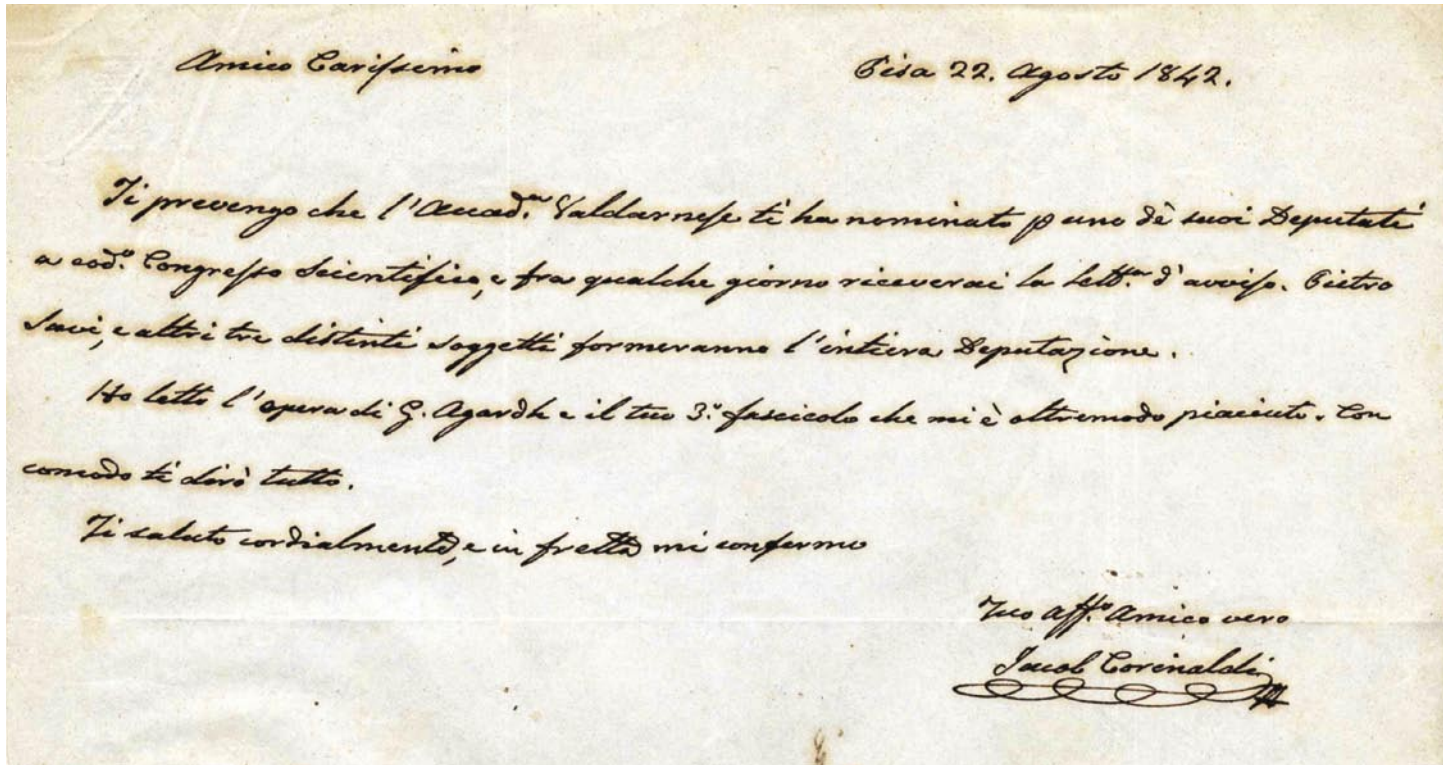 Amico Carissimo Pisa 22. Agosto 1842.
Ti prevengo che l'Accad.ª Valdarnese ti ha nominato p uno dè suoi Deputati
a cod.º Congresso Scientifico, e fra qualche giorno riceverai la lett.ª d'avviso. Pietro
Savi, e altri tre distinti soggetti formeranno l'intiera Deputazione.
Ho letto l'opera di G. Agardh e il tuo 3.º fascicolo che mi è oltremodo piaciuto. Con
comodo ti dirò tutto.
Ti saluto cordialmente, e in fretta mi confermo
Tuo aff.º Amico vero
Jacob Corinaldi